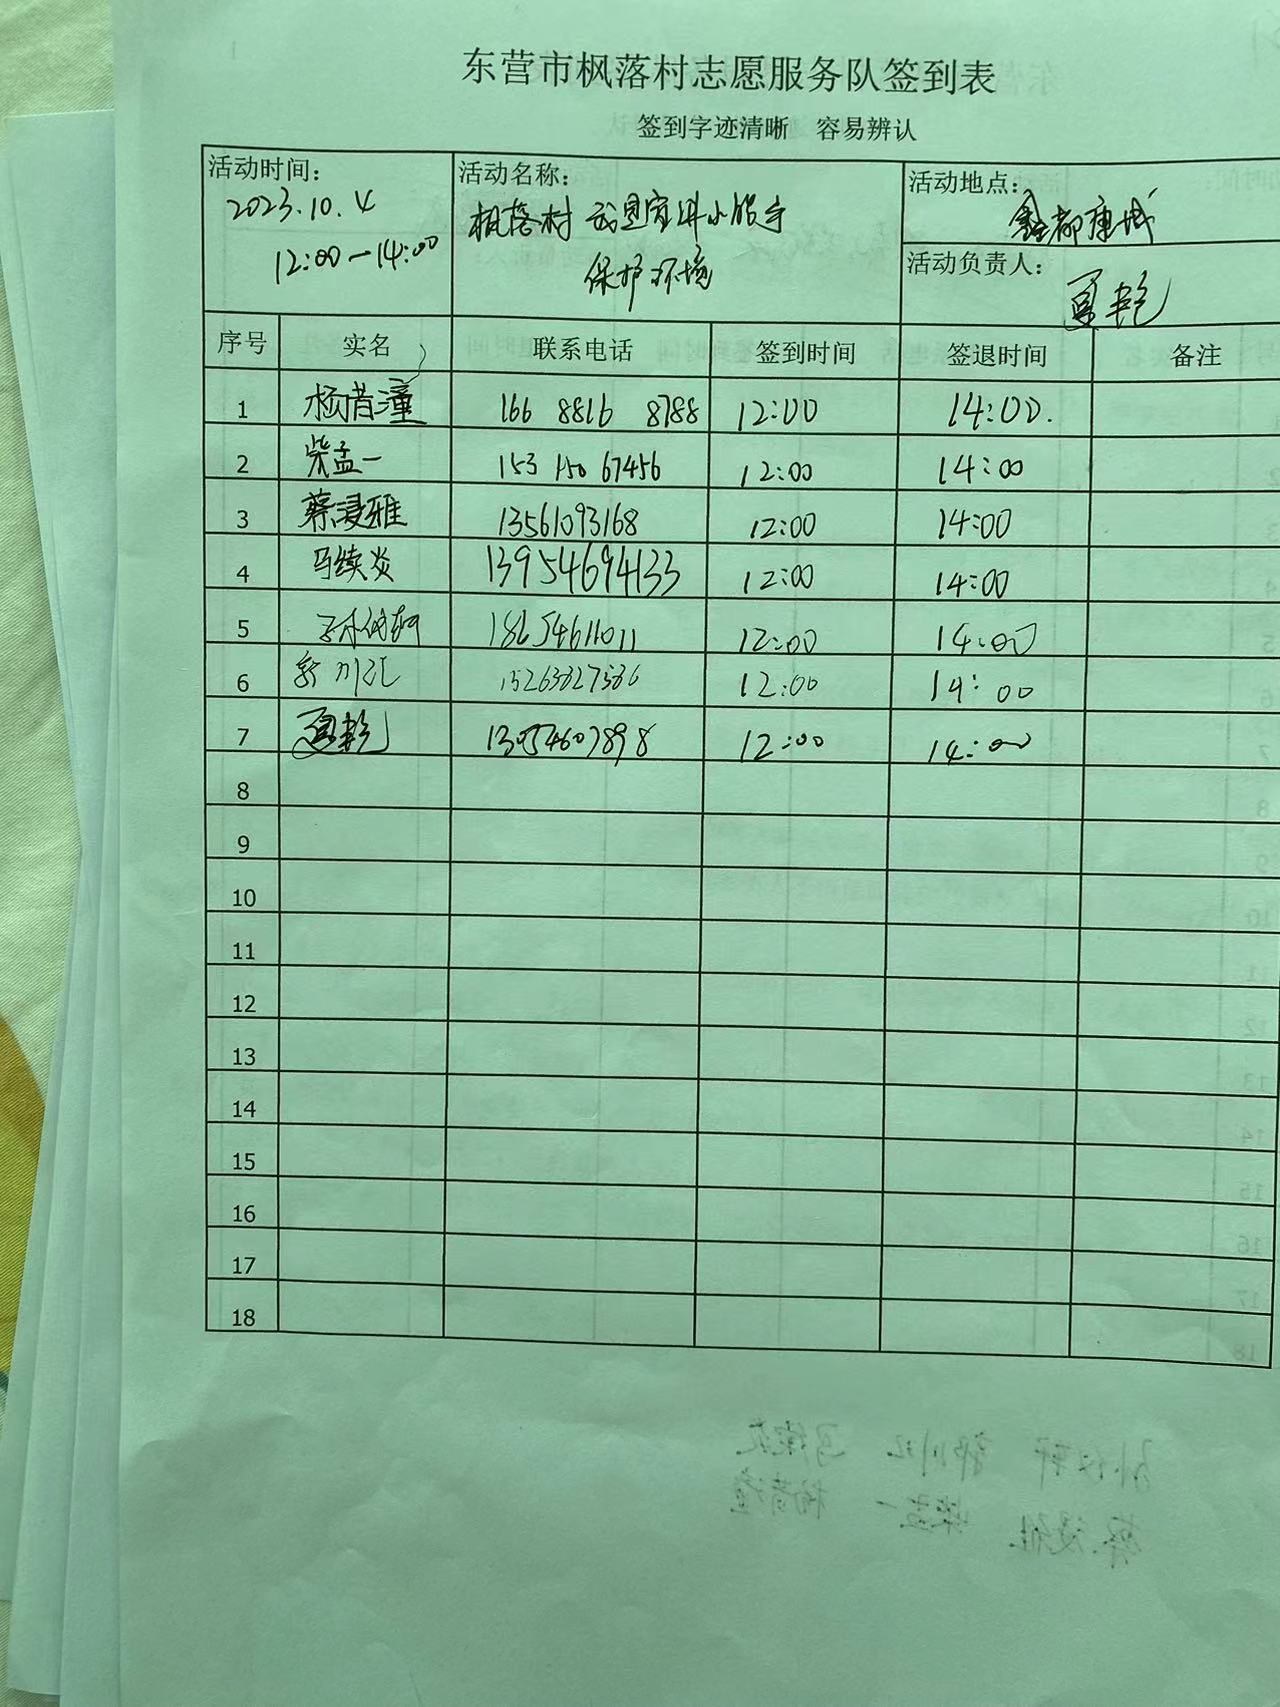 东营市枫落村志愿服务队签到表
签到字迹清晰 容易辨认
活动时间：
2023.10.4
12:00—14:00
活动名称：
枫落村
保护环境
活动地点：
鑫都康城
活动负责人：
序号 实名 联系电话 签到时间 签退时间 备注
1 杨 潼 166 8816 8788 12:00 14:00.
2 柴孟一 153 150 67456 12:00 14:00
3 蔡浸雅 13561093168 12:00 14:00
4 马续炎 13954694133 12:00 14:00
5 18654611011 12:00 14:00
6 15263827586 12:00 14:00
7 13054607898 12:00 14:00
8
9
10
11
12
13
14
15
16
17
18